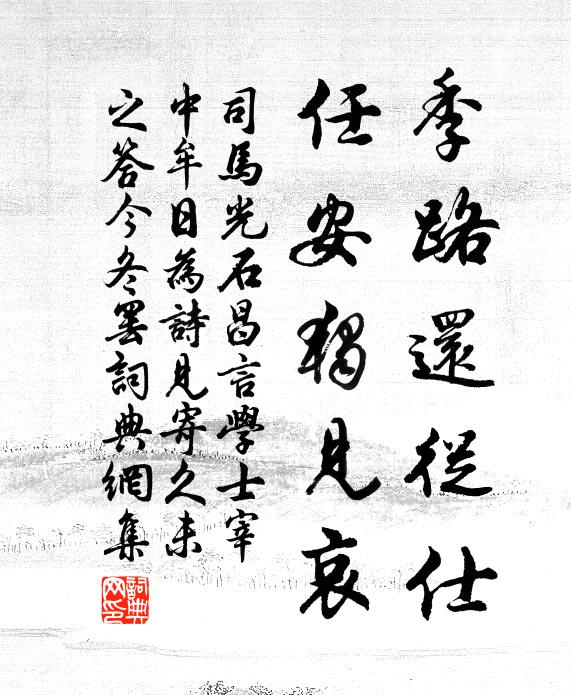 季路還從仕
任安獨見哀
司馬光石昌言學士宰
中牟日為詩見寄久未
之答今冬罢詞典網集
詞典
网印